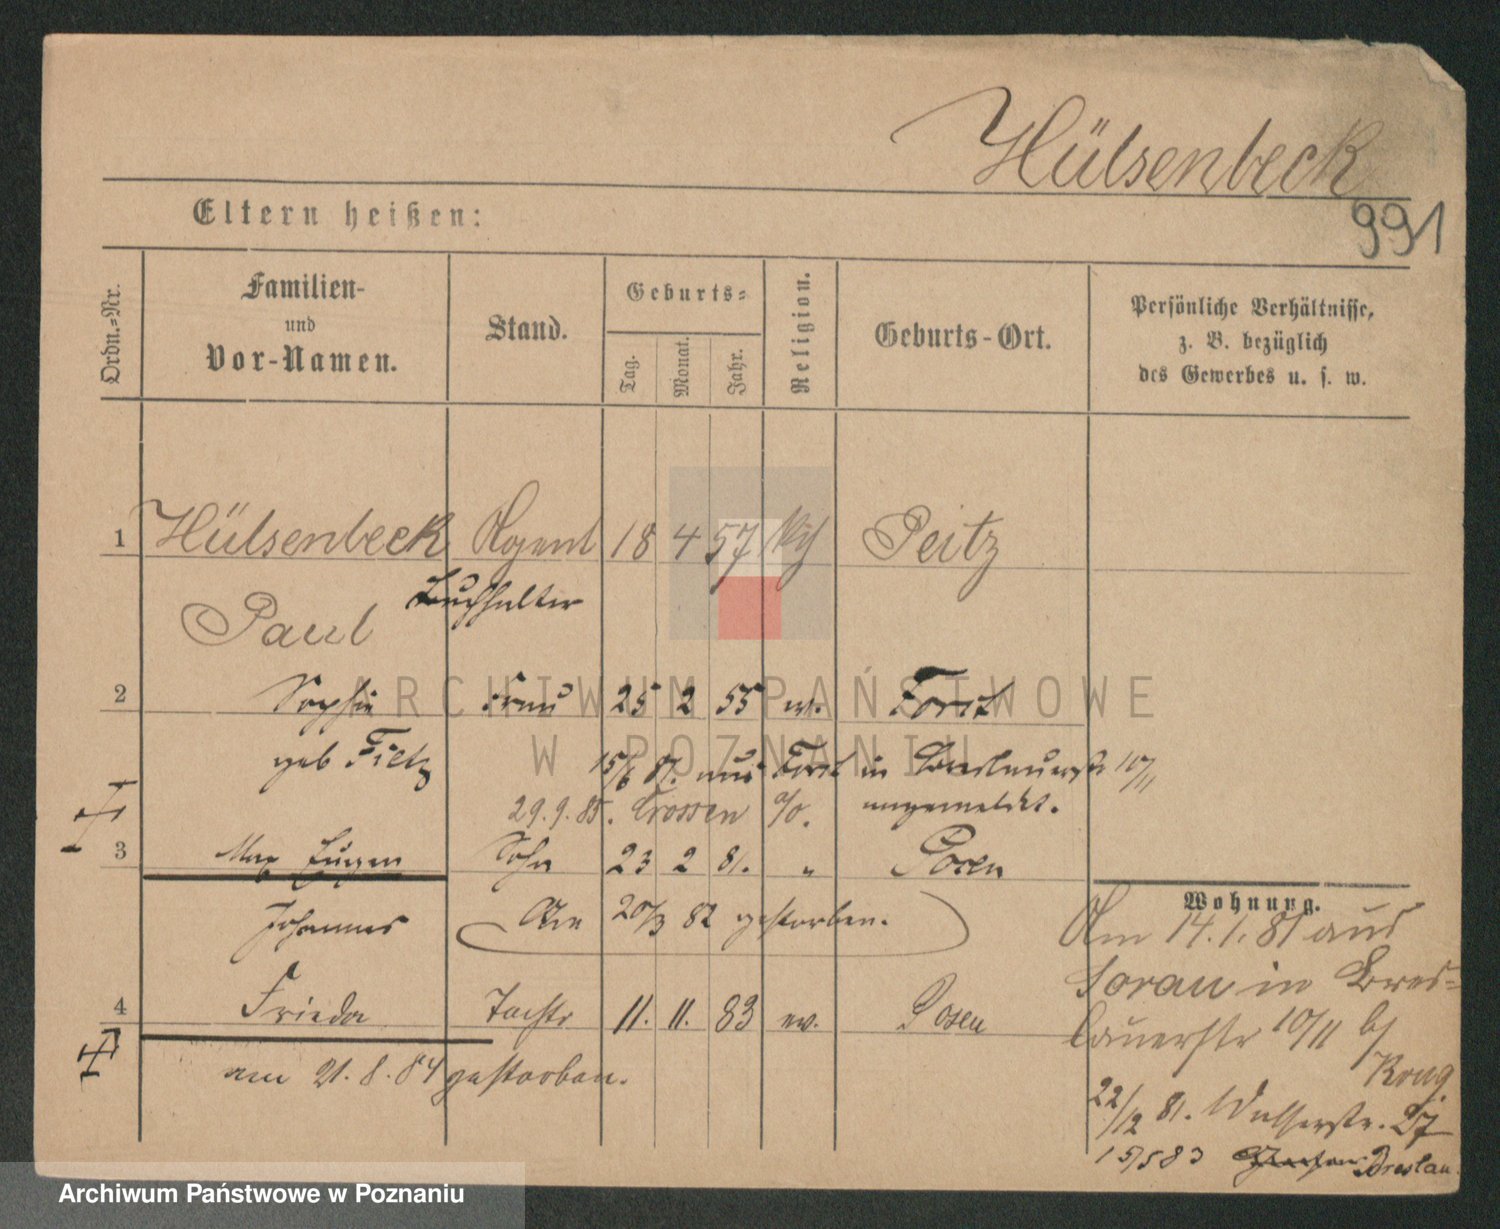 Hülsenbeck
991
Eltern heißen:
Ordn.-Nr.
Familien-
und
Vor-Namen.
Stand.
Geburts-
Tag.
Monat.
Jahr.
Religion.
Geburts-Ort.
Persönliche Verhältnisse,
z. B. bezüglich
des Gewerbes u. s. w.
1 Hülsenbeck Agent 18 4 57 Peitz
Buchhalter
Paul
2 Sophie Frau 25 2 55 ev. Forst
geb Fietz 15/6 81. aus Forst in Breslauerstr 10/11
29.9.85. Crossen a/O. angemeldet.
3 Max Eugen Sohn 23 2 81. " Posen
Johannes Am 20/3 82 gestorben.
4 Frieda Tochtr 11. 11. 83 ev. Posen
am 21.8.84 gestorben.
Wohnung.
Am 14.1.81 aus
Sorau in Bres=
lauerstr 10/11 b/
22/12 81. 27
15/5 83 Breslau.
ARCHIWUM PAŃSTWOWE
W POZNANIU
Archiwum Państwowe w Poznaniu